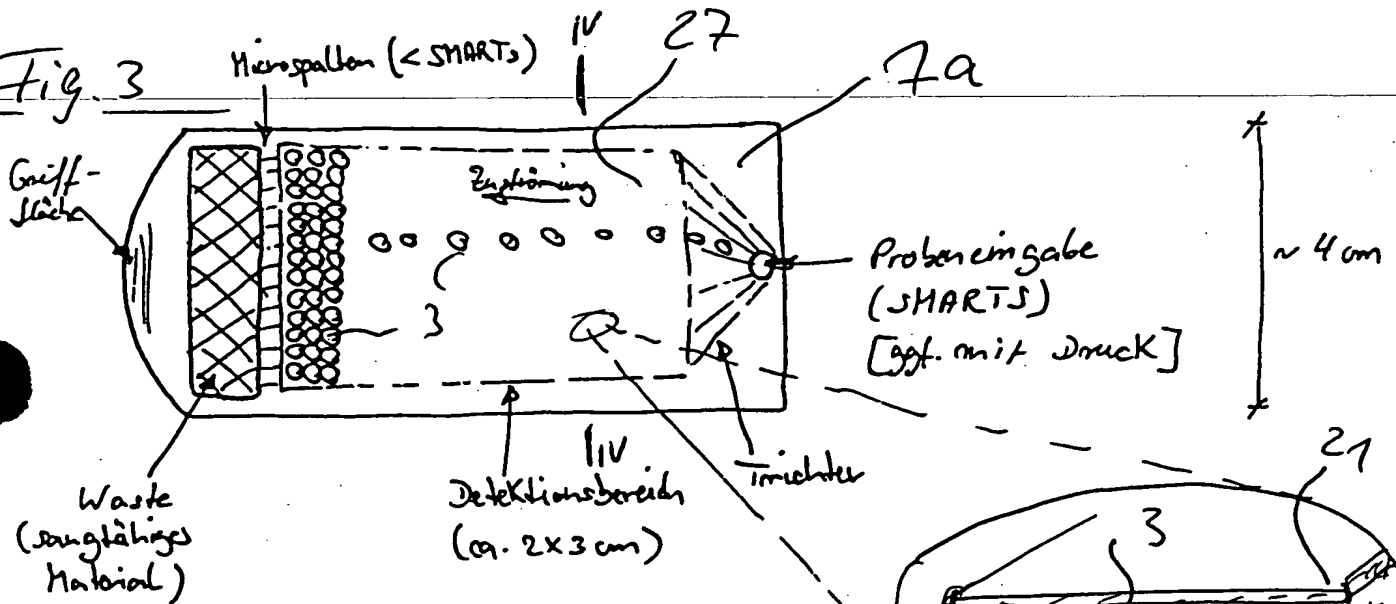 Fig. 3
Microspalten (< SMARTs)
IV
27
7a
Griff-
fläche
Zuströmung
3
Probeneingabe
(SMARTS)
[ggf. mit Druck]
~ 4 cm
IV
Trichter
Waste
(saugfähiges
Material)
Detektionsbereich
(ca. 2x3 cm)
21
3